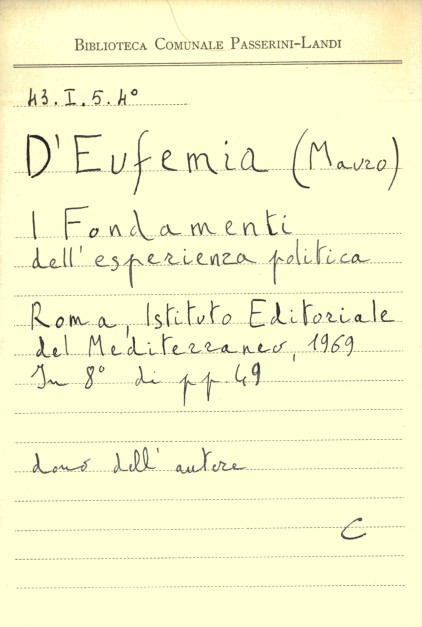 BIBLIOTECA COMUNALE PASSERINI-LANDI
43.I.5.4°
D'Eufemia (Mauro)
I Fondamenti
dell'esperienza politica
Roma, Istituto Editoriale
del Mediterraneo, 1969
In 8° di pp. 49
dono dell'autore
C